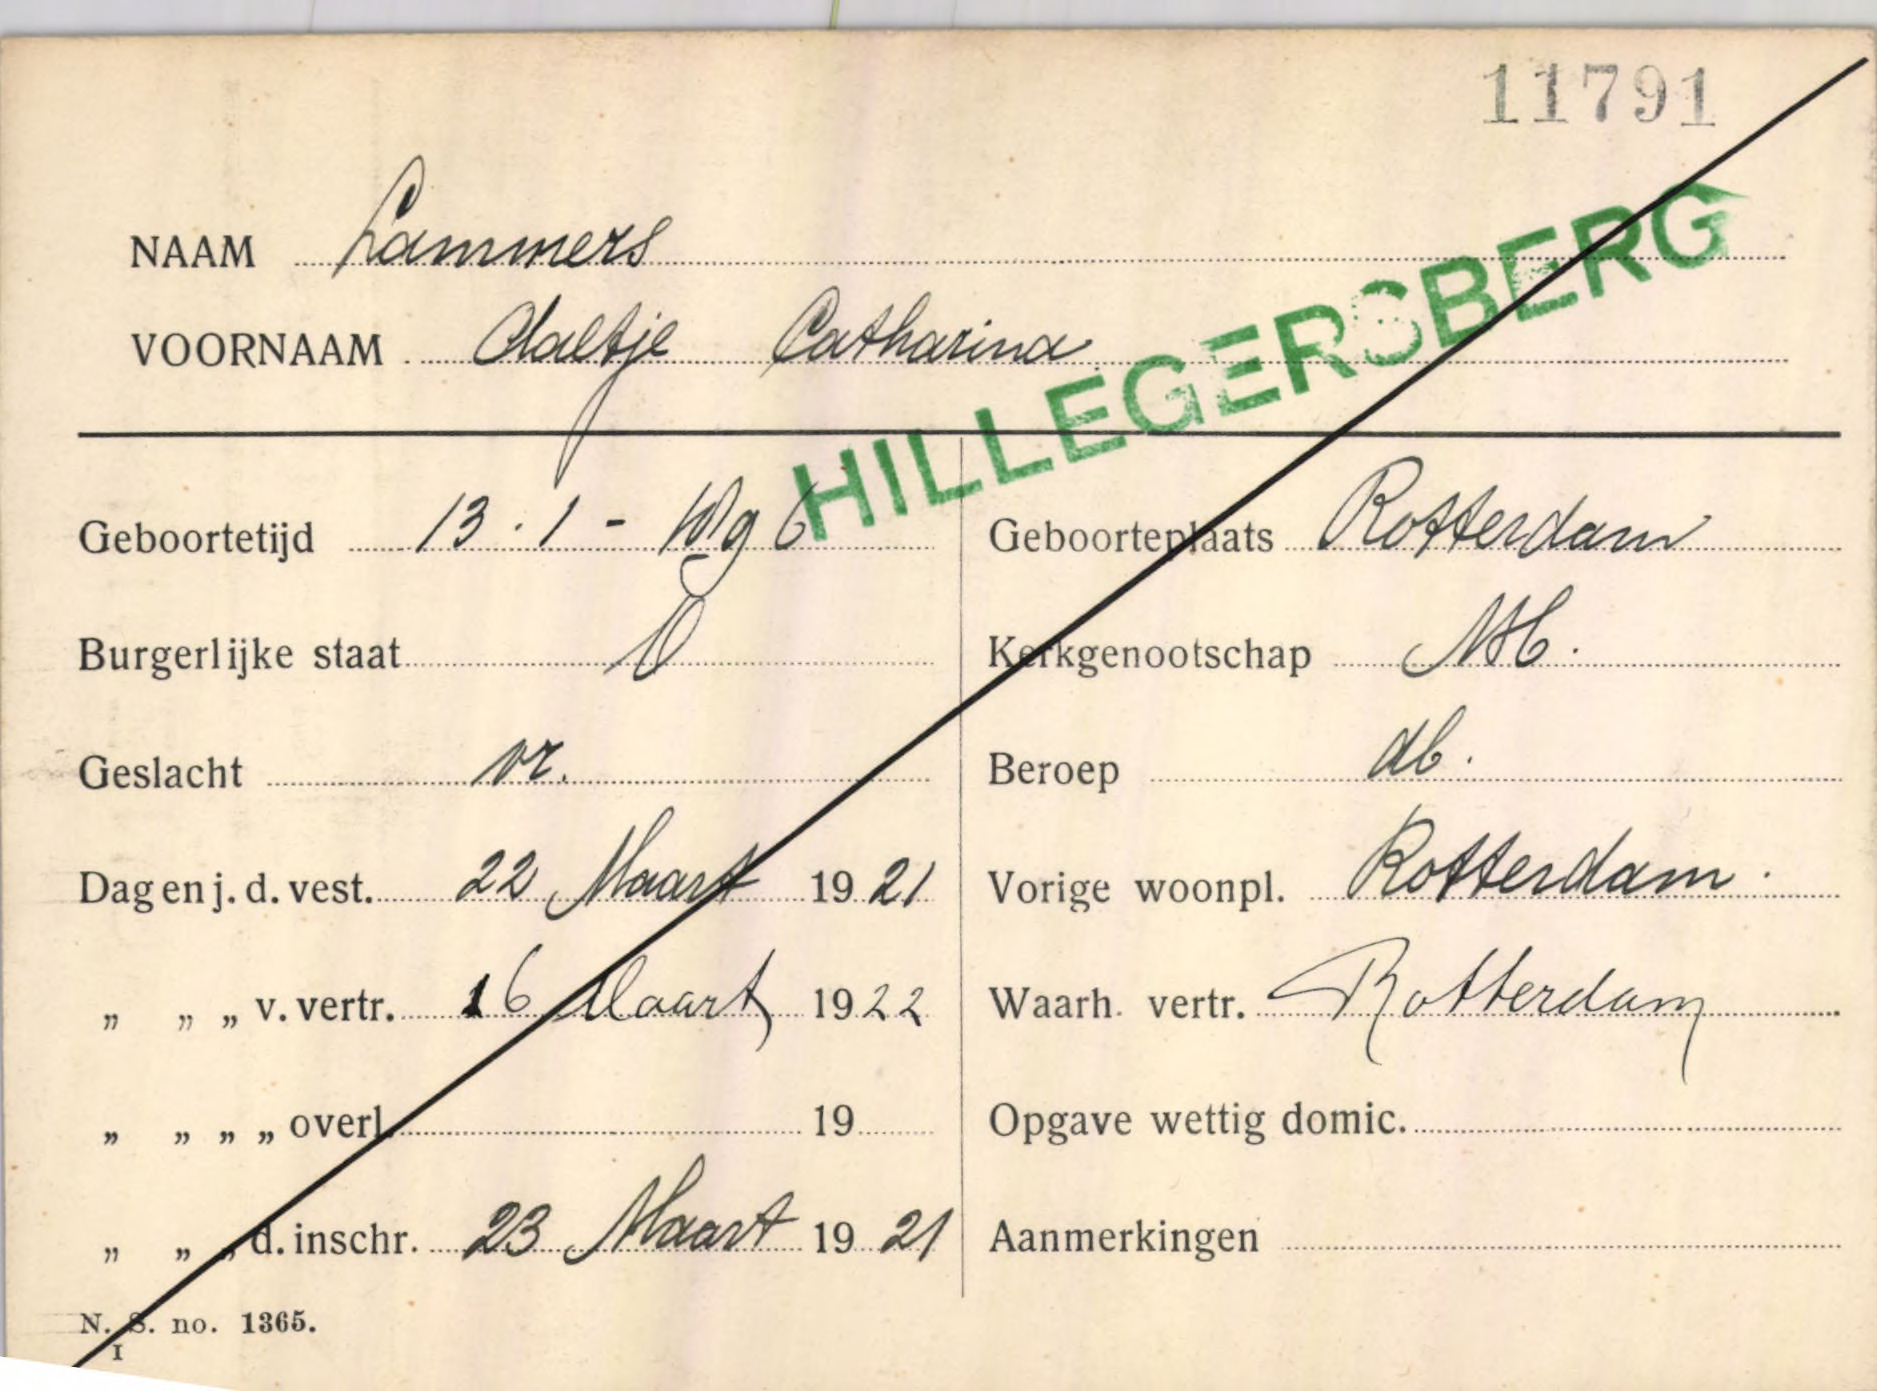 11791
NAAM Lammers
VOORNAAM Aaltje Catharina
HILLEGERSBERG
Geboortetijd 13.1-
Geboorteplaats Rotterdam
Burgerlijke staat O
Kerkgenootschap NH.
Geslacht vr.
Beroep db.
Dag en j. d. vest. 22 Maart 1921
Vorige woonpl. Rotterdam.
„ „ „ v. vertr. 16 Maart 1922
Waarh. vertr. Rotterdam
„ „ „ „ overl. 19
Opgave wettig domic.
„ „ „ d. inschr. 23 Maart 1921
Aanmerkingen
N. S. no. 1365.
I